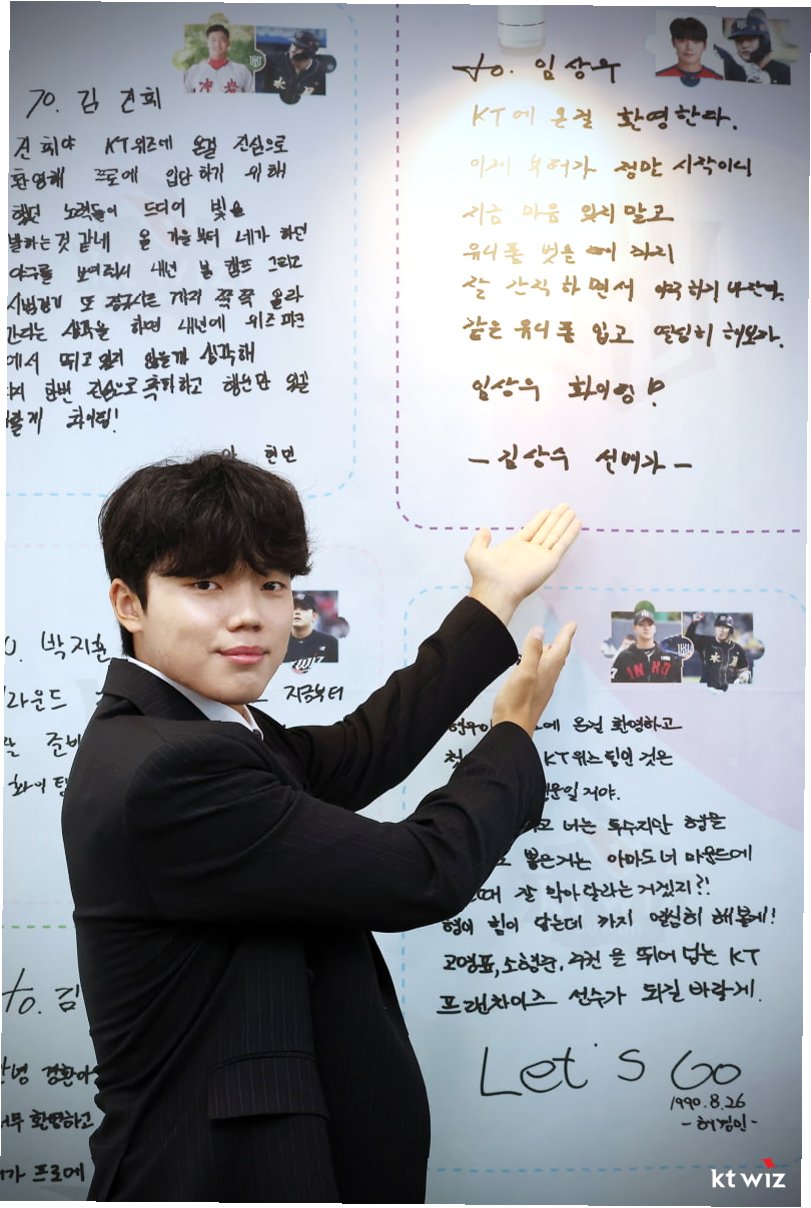 To. 김 건희
건희야 KT위즈에 온걸 진심으로
환영해 프로에 입단하기 위해
했던 노력들이 드디어 빛을
발하는것 같네 올 가을부터 네가 하던
야구를 보여줘서 내년 봄 캠프 그리고
시범경기 또 정규시즌까지 쭉쭉 올라
간다는 생각을 하면 내년에 위즈파크
에서 뛰고 있지 않을까 생각해
다시 한번 진심으로 축하하고 행운만 있길
바랄게 화이팅!
안 현민
to. 임상우
KT에 온걸 환영한다.
이제 부터가 정말 시작이니
지금 마음 잊지말고
유니폼 벗을 때 까지
잘 간직하면서 야구하기 바란다.
같은 유니폼 입고 열심히 해보자.
임상우 화이팅!
- 김상수 선배가 -
박지훈
라운드
지금부터
준비
화이팅
wiz
에 온걸 환영하고
KT위즈 팀인 것은
문일거야.
너는 투수지만 형을
뽑은거는 아마도 너 마운드에
때 잘 막아달라는거겠지?!
형이 힘이 닿는데 까지 열심히 해볼게!
고영표, 소형준, 주권 을 뛰어 넘는 KT
프랜차이즈 선수가 되길 바랄게.
Let's Go
1990.8.26
- 허경민 -
to. 김
안녕 경환아
너무 환영하고
가 프로에
kt wiz